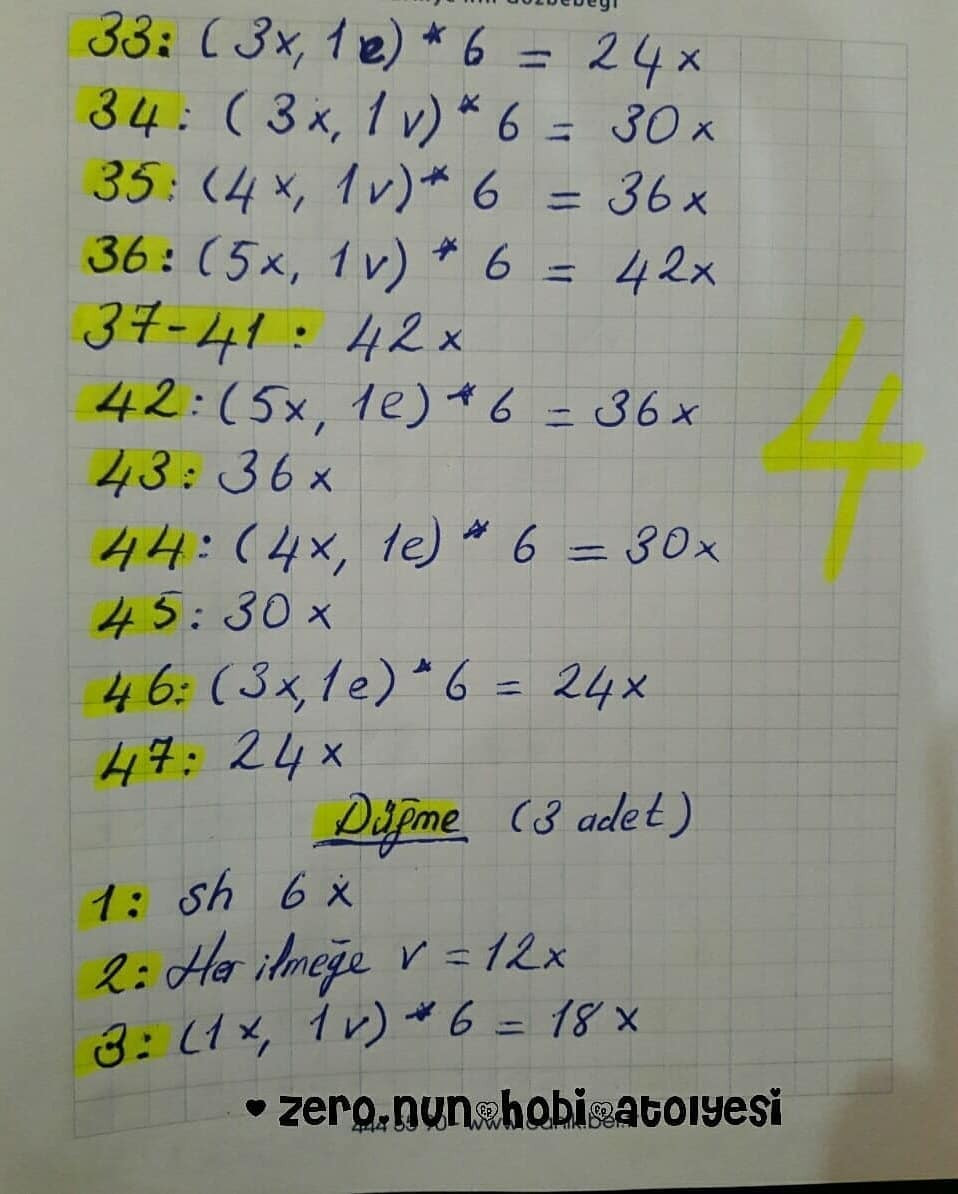 33: (3x, 1e) * 6 = 24x
34: (3x, 1v) * 6 = 30x
35: (4x, 1v) * 6 = 36x
36: (5x, 1v) * 6 = 42x
37-41: 42x
42: (5x, 1e) * 6 = 36x
43: 36x
44: (4x, 1e) * 6 = 30x
45: 30x
46: (3x, 1e) * 6 = 24x
47: 24x
4
Düğme (3 adet)
1: sh 6x
2: Her ilmeğe v = 12x
3: (1x, 1v) * 6 = 18x
♥ zero.nun hobi atolyesi